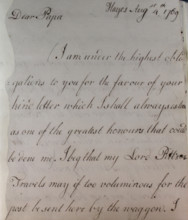 Hayes Augst 4th 1769
Dear Papa
I am under the highest Obli
gations to you for the favour of your
kind letter which I shall always esteem
as one of the greatest honours that could
be done me. I beg that my Lord
Travels may if too voluminious for the
post be sent here by the waggon. I